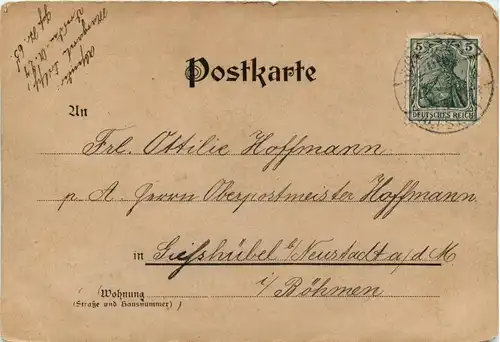 Postkarte
5 5
DEUTSCHES REICH
An
Frl. Ottilie Hoffmann
p. A. Herrn Oberpostmeister Hoffmann
in Giesshübel b/Neustadt a/d M
i/Böhmen
Wohnung
(Straße und Hausnummer)